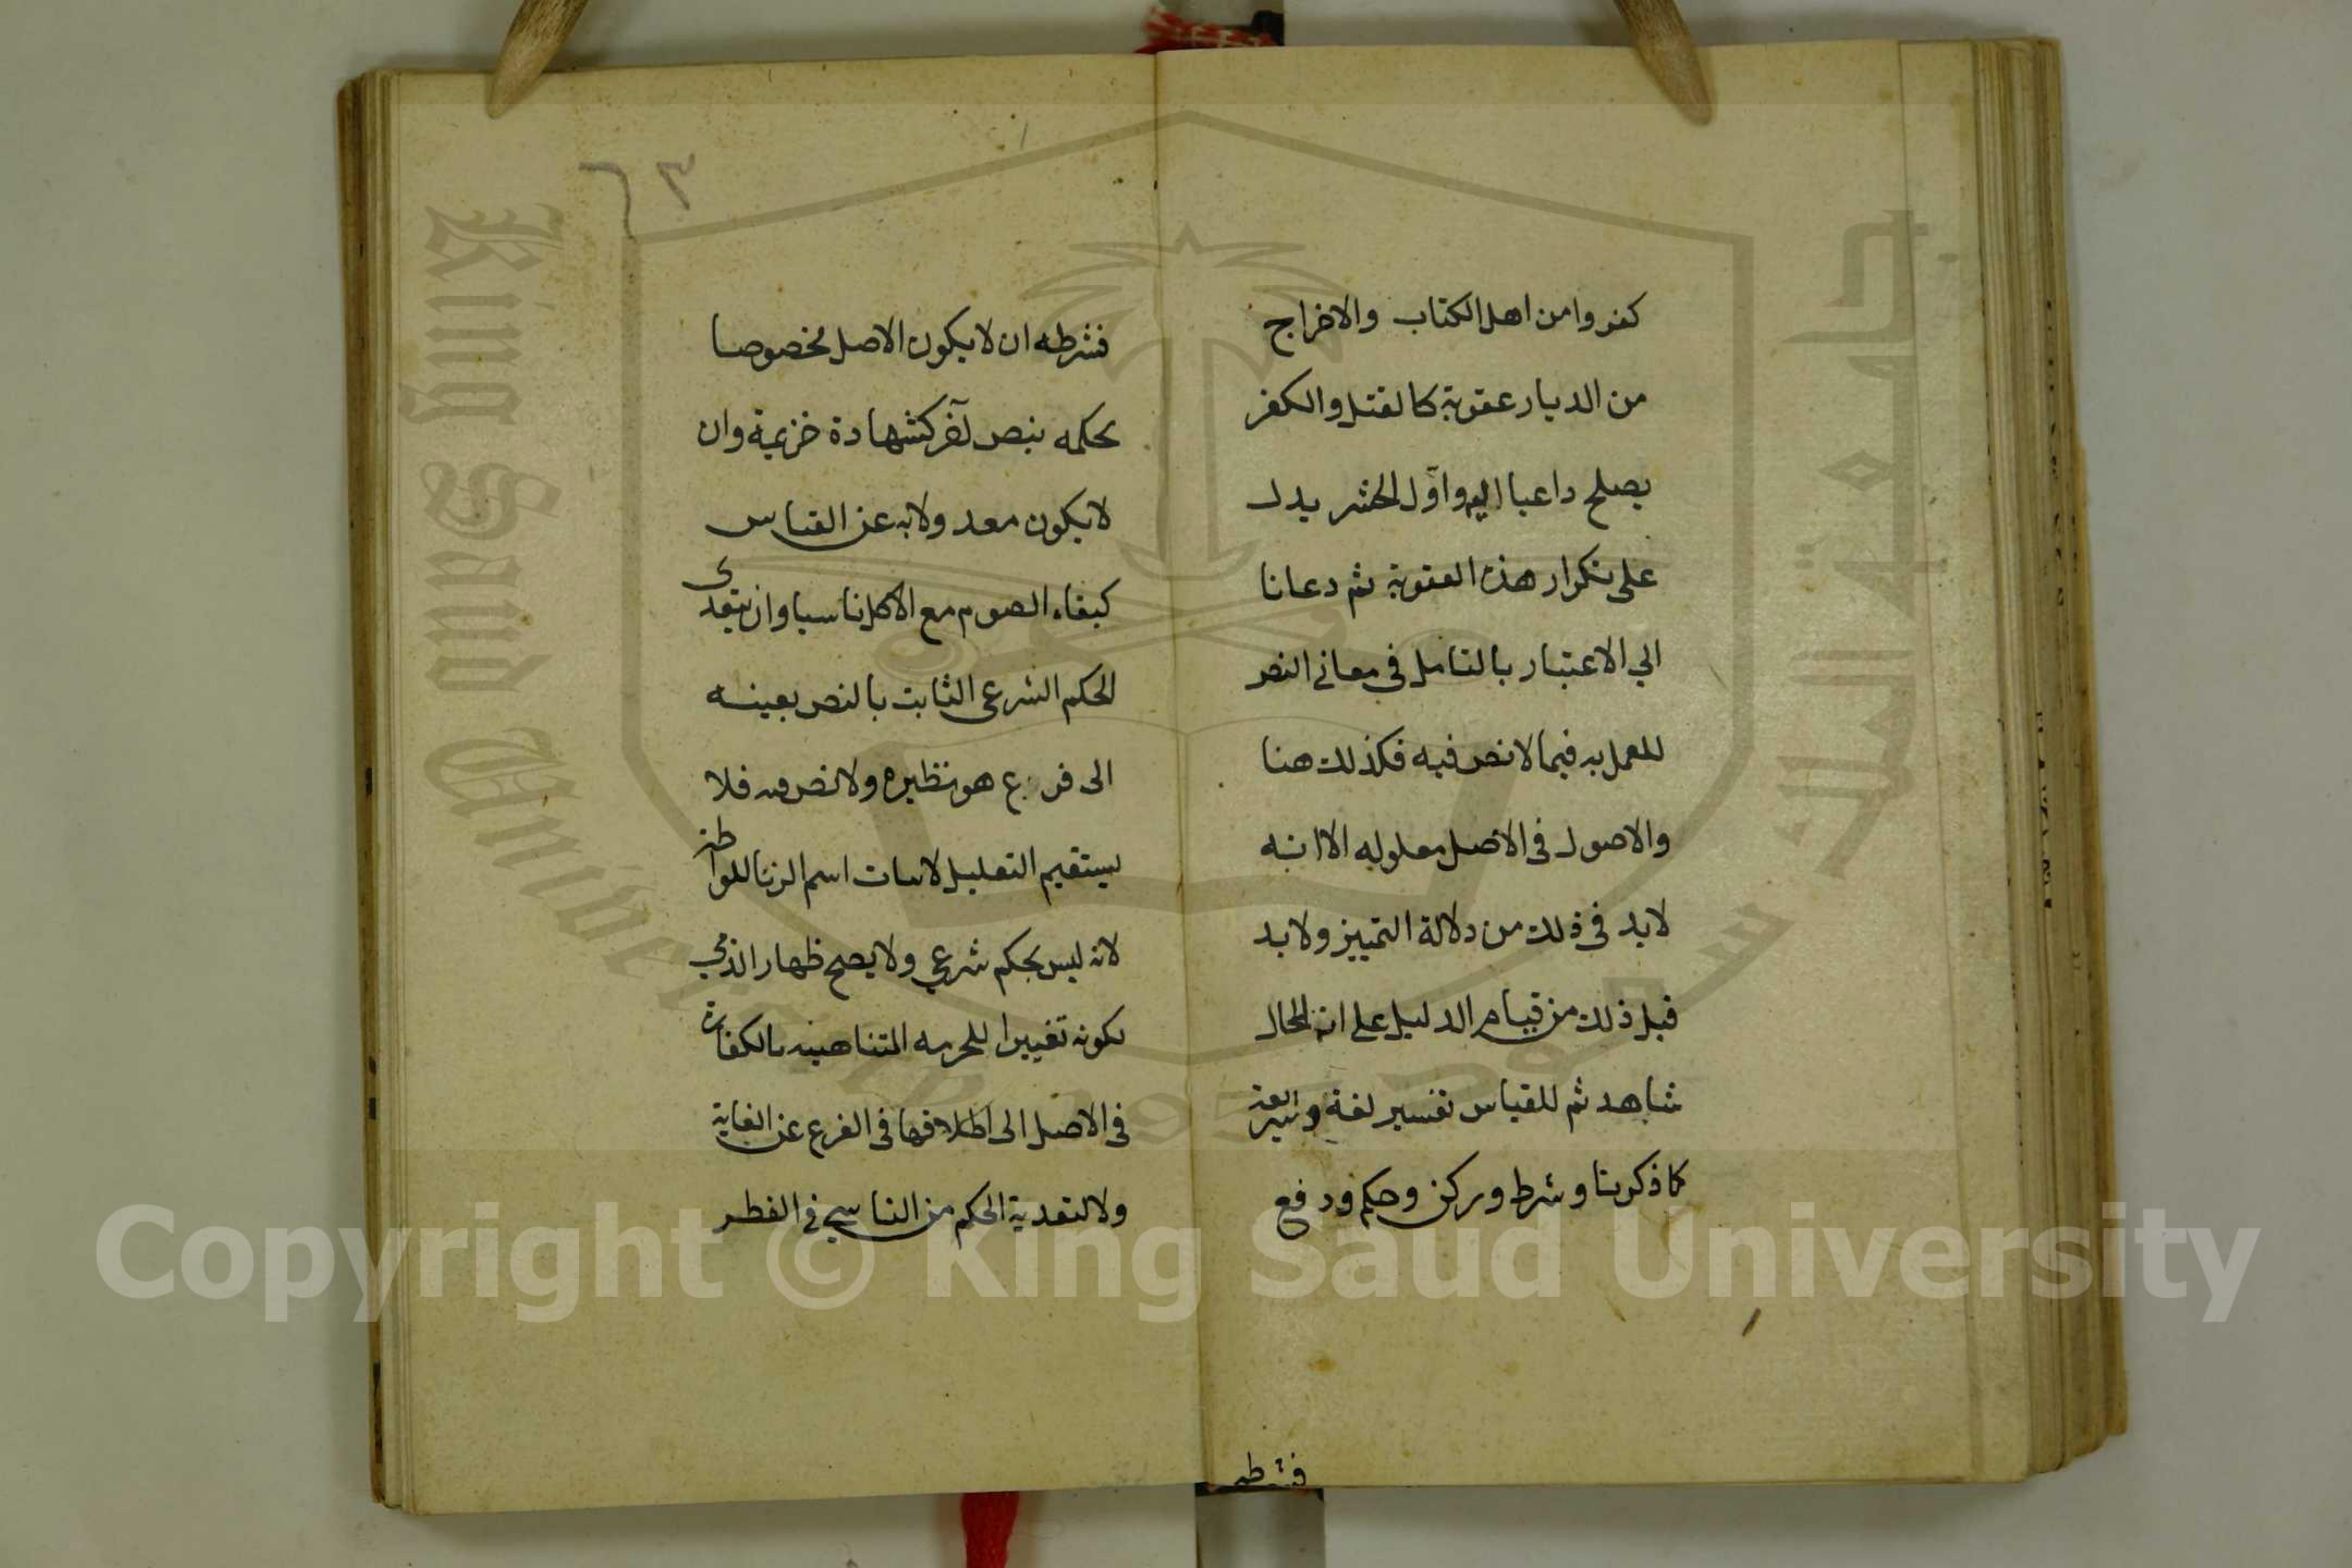 كفروا من اهل الكتاب والاخراج
من الديار عقوبة كالقتل والكفر
يصلح داعيا اليه واول الحشر يدل
على تكرار هذه العقوبة ثم دعانا
الي الاعتبار بالتامل في معاني النص
للعمل به فيما لا نص فيه فكذلك هنا
والاصول في الاصل معلوله الا انه
لا بد في ذلك من دلالة التمييز ولا بد
قبل ذلك من قيام الدليل على انه للحال
شاهد ثم للقياس تفسير لغة وشريعة
كما ذكرنا وشرط وركن وحكم ودفع
فشرطه
٢٣
فشرطه ان لا يكون الاصل مخصوصا
بحكمه بنص آخر كشهادة خزيمة وان
لا يكون معدولا به عن القياس
كبقاء الصوم مع الاكل ناسيا وان يتعدى
الحكم الشرعي الثابت بالنص بعينه
الى فرع هو نظيره ولا نص فيه فلا
يستقيم التعليل لاثبات اسم الزنا للواطة
لانه ليس بحكم شرعي ولا يصح ظهار الذمي
لكونه تغييرا للحرمه المتناهيه بالكفارة
في الاصل الى اطلاقها في الفرع عن الغاية
ولا لتعدية الحكم من الناسي في الفطر
King Saud University
جامعة الملك سعود
1957
Copyright © King Saud University